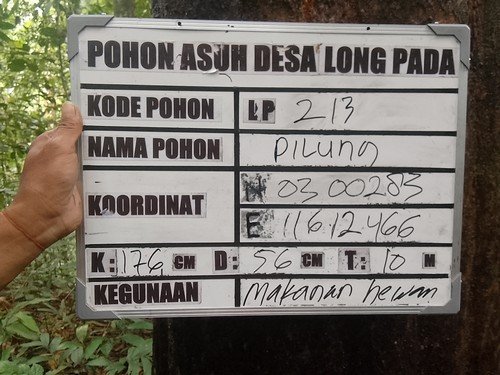 POHON ASUH DESA LONG PADA
KODE POHON LP 213
NAMA POHON PILUNG
KOORDINAT N 03.00283
E 116.12466
K: 176 CM D: 56 CM T: 10 M
KEGUNAAN Makanan hewan